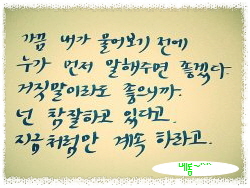 가끔 내가 물어보기 전에
누가 먼저 말해주면 좋겠다.
거짓말이라도 좋으니까.
넌 참잘하고 있다고.
지금처럼만 계속 하라고.